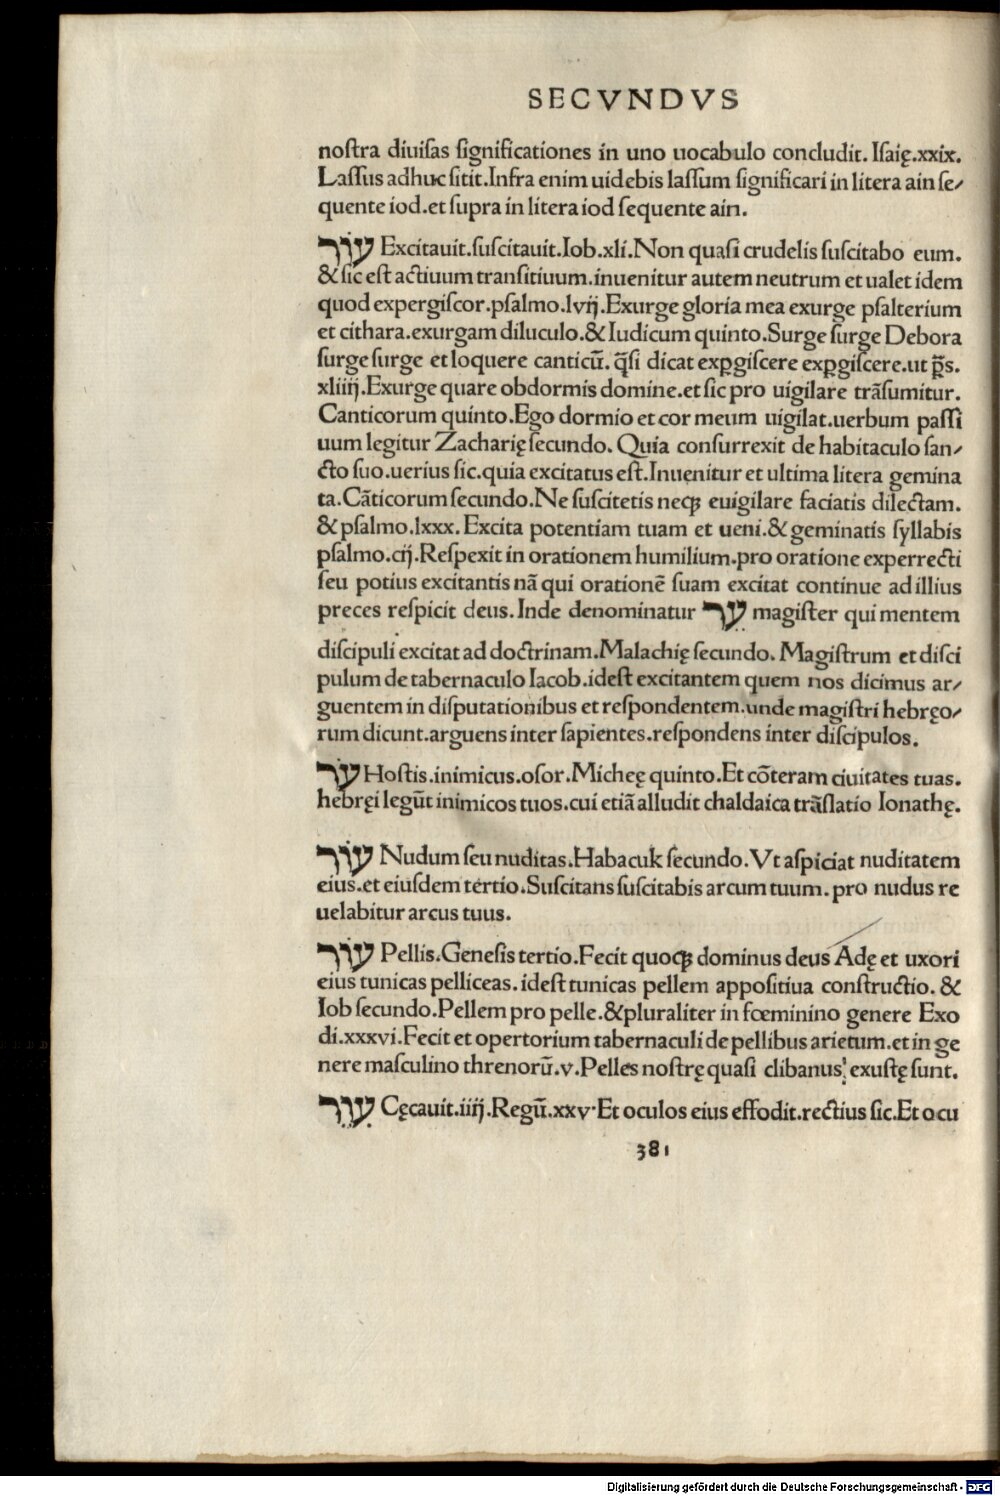 SECVNDVS
noſtra diuiſas ſignificationes in uno uocabulo concludit. Iſaię.xxix.
Laſſus adhuc ſitit.Infra enim uidebis laſſum ſignificari in litera ain ſe⸗
quente iod.et ſupra in litera iod ſequente ain.
עוֹר Excitauit.ſuſcitauit.Iob.xli.Non quaſi crudelis ſuſcitabo eum.
& ſic eſt actiuum tranſitiuum.inuenitur autem neutrum et ualet idem
quod expergiſcor.pſalmo.lvij.Exurge gloria mea exurge pſalterium
et cithara.exurgam diluculo.& Iudicum quinto.Surge ſurge Debora
ſurge ſurge et loquere canticū. q̄ſi dicat exꝑgiſcere exꝑgiſcere.ut p̄s.
xliiij.Exurge quare obdormis domine.et ſic pro uigilare trāſumitur.
Canticorum quinto.Ego dormio et cor meum uigilat.uerbum paſſi
uum legitur Zacharię ſecundo. Quia conſurrexit de habitaculo ſan⸗
cto ſuo.uerius ſic.quia excitatus eſt.Inuenitur et ultima litera gemina
ta.Cāticorum ſecundo.Ne ſuſcitetis neqꝫ euigilare faciatis dilectam.
& pſalmo.lxxx.Excita potentiam tuam et ueni.& geminatis ſyllabis
pſalmo.cij.Reſpexit in orationem humilium.pro oratione experrecti
ſeu potius excitantis nā qui orationē ſuam excitat continue ad illius
preces reſpicit deus.Inde denominatur עֵר magiſter qui mentem
diſcipuli excitat ad doctrinam.Malachię ſecundo. Magiſtrum et diſci
pulum de tabernaculo Iacob.ideſt excitantem quem nos dicimus ar⸗
guentem in diſputationibus et reſpondentem.unde magiſtri hebręo⸗
rum dicunt.arguens inter ſapientes.reſpondens inter diſcipulos.
עֹר Hoſtis.inimicus.oſor.Micheę quinto.Et cōteram ciuitates tuas.
hebręi legūt inimicos tuos.cui etiā alludit chaldaica trāſlatio Ionathę.
עוֹר Nudum ſeu nuditas.Habacuk ſecundo.Vt aſpiciat nuditatem
eius.et eiuſdem tertio.Suſcitans ſuſcitabis arcum tuum. pro nudus re
uelabitur arcus tuus.
עוֹר Pellis.Geneſis tertio.Fecit quoqꝫ dominus deus Adę et uxori
eius tunicas pelliceas.ideſt tunicas pellem appoſitiua conſtructio. &
Iob ſecundo.Pellem pro pelle.& pluraliter in fœminino genere Exo
di.xxxvi.Fecit et opertorium tabernaculi de pellibus arietum.et in ge
nere maſculino threnorū.v.Pelles noſtrę quaſi clibanus exuſtę ſunt.
עִוֵר Cęcauit.iiij.Regū.xxv.Et oculos eius effodit.rectius ſic.Et ocu
381
Digitalisierung gefördert durch die Deutsche Forschungsgemeinschaft - DFG